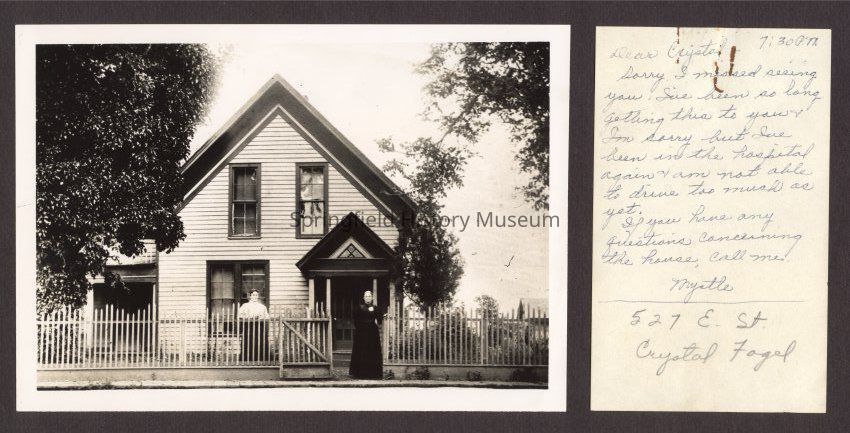 Springfield History Museum
7:30 P.M.
Dear Crystal
Sorry I missed seeing
you. I've been so long
getting this to you &
I'm sorry but I've
been in the hospital
again & am not able
to drive too much as
yet.
If you have any
questions concerning
the house, call me.
Myrtle
527 E. St.
Crystal Fogel